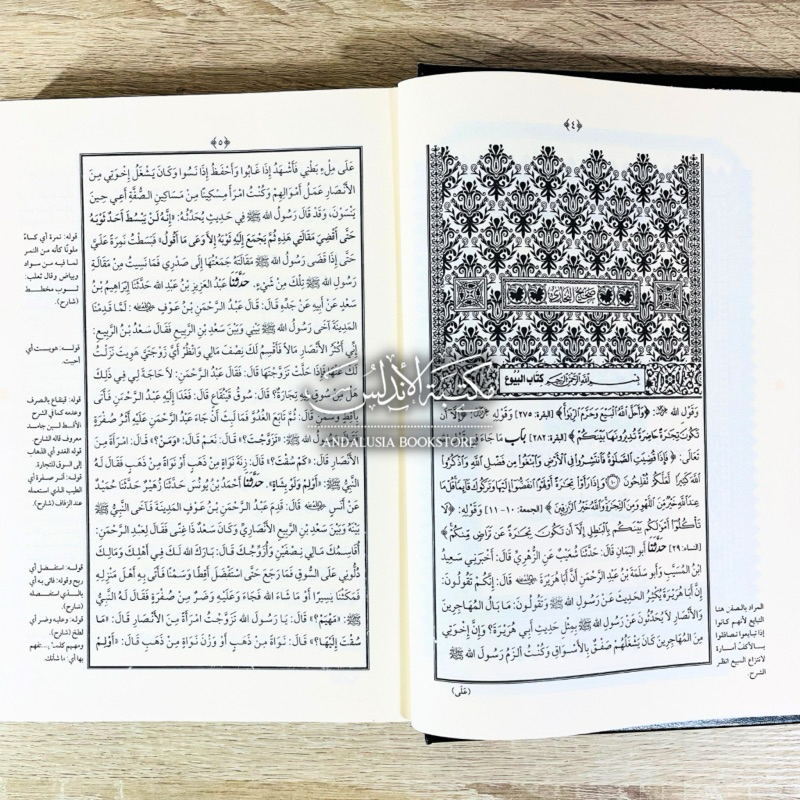 ﴿٤﴾
صحيح البخاري
بسم الله الرحمن الرحيم كتاب البيوع
وَقَوْلِ الله ﷿: ﴿وَأَحَلَّ اللَّهُ الْبَيْعَ وَحَرَّمَ الرِّبَوٰاْ﴾ [البقرة: ٢٧٥] وَقَوْلِهِ ﷿: ﴿إِلَّا أَن
تَكُونَ تِجَٰرَةً حَاضِرَةً تُدِيرُونَهَا بَيْنَكُمْ﴾ [البقرة: ٢٨٢] باب مَا جَاءَ فِي
تَعَالَى: ﴿فَإِذَا قُضِيَتِ الصَّلَوٰةُ فَانتَشِرُوا فِي الْأَرْضِ وَابْتَغُوا مِن فَضْلِ اللَّهِ وَاذْكُرُوا
اللَّهَ كَثِيرًا لَّعَلَّكُمْ تُفْلِحُونَ ۝ وَإِذَا رَأَوْا تِجَٰرَةً أَوْ لَهْوًا انفَضُّوا إِلَيْهَا وَتَرَكُوكَ قَائِمًا قُلْ مَا
عِندَ اللَّهِ خَيْرٌ مِّنَ اللَّهْوِ وَمِنَ التِّجَٰرَةِ وَاللَّهُ خَيْرُ الرَّٰزِقِينَ﴾ [الجمعة: ١٠-١١] وَقَوْلِهِ: ﴿لَا
تَأْكُلُوا أَمْوَٰلَكُم بَيْنَكُم بِالْبَٰطِلِ إِلَّا أَن تَكُونَ تِجَٰرَةً عَن تَرَاضٍ مِّنكُمْ﴾
[النساء: ٢٩] حَدَّثَنَا أَبُو اليَمَانِ قَالَ: حَدَّثَنَا شُعَيْبٌ عَنِ الزُّهْرِيِّ قَالَ: أَخْبَرَنِي سَعِيدُ
ابْنُ المُسَيَّبِ وَأَبُو سَلَمَةَ بْنُ عَبْدِ الرَّحْمَنِ أَنَّ أَبَا هُرَيْرَةَ قَالَ: إِنَّكُمْ تَقُولُونَ:
إِنَّ أَبَا هُرَيْرَةَ يُكْثِرُ الحَدِيثَ عَنْ رَسُولِ الله ﷺ وَتَقُولُونَ: مَا بَالُ المُهَاجِرِينَ
وَالأَنْصَارِ لَا يُحَدِّثُونَ عَنْ رَسُولِ الله ﷺ بِمِثْلِ حَدِيثِ أَبِي هُرَيْرَةَ؟ وَإِنَّ إِخْوَتِي
مِنَ المُهَاجِرِينَ كَانَ يَشْغَلُهُمْ صَفْقٌ بِالأَسْوَاقِ وَكُنْتُ أَلْزَمُ رَسُولَ الله ﷺ
(عَلَى)
المراد بالصفق هنا
التبايع لأنهم كانوا
إذا تبايعوا تصافقوا
بالأكف أمارة
لانتزاع المبيع انظر
الشرح.
﴿٥﴾
عَلَى مِلْءِ بَطْنِي فَأَشْهَدُ إِذَا غَابُوا وَأَحْفَظُ إِذَا نَسُوا وَكَانَ يَشْغَلُ إِخْوَتِي مِنَ
الأَنْصَارِ عَمَلُ أَمْوَالِهِمْ وَكُنْتُ امْرَأً مِسْكِينًا مِنْ مَسَاكِينِ الصُّفَّةِ أَعِي حِينَ
يَنْسَوْنَ، وَقَدْ قَالَ رَسُولُ الله ﷺ فِي حَدِيثٍ يُحَدِّثُهُ: «إِنَّهُ لَنْ يَبْسُطَ أَحَدٌ ثَوْبَهُ
حَتَّى أَقْضِيَ مَقَالَتِي هَذِهِ ثُمَّ يَجْمَعَ إِلَيْهِ ثَوْبَهُ إِلَّا وَعَى مَا أَقُولُ» فَبَسَطْتُ نَمِرَةً عَلَيَّ
حَتَّى إِذَا قَضَى رَسُولُ الله ﷺ مَقَالَتَهُ جَمَعْتُهَا إِلَى صَدْرِي فَمَا نَسِيتُ مِنْ مَقَالَةِ
رَسُولِ الله ﷺ تِلْكَ مِنْ شَيْءٍ. حَدَّثَنَا عَبْدُ العَزِيزِ بْنُ عَبْدِ الله حَدَّثَنَا إِبْرَاهِيمُ بْنُ
سَعْدٍ عَنْ أَبِيهِ عَنْ جَدِّهِ قَالَ: قَالَ عَبْدُ الرَّحْمَنِ بْنُ عَوْفٍ: لَمَّا قَدِمْنَا
المَدِينَةَ آخَى رَسُولُ الله ﷺ بَيْنِي وَبَيْنَ سَعْدِ بْنِ الرَّبِيعِ فَقَالَ سَعْدُ بْنُ الرَّبِيعِ:
إِنِّي أَكْثَرُ الأَنْصَارِ مَالًا فَأَقْسِمُ لَكَ نِصْفَ مَالِي وَانْظُرْ أَيَّ زَوْجَتَيَّ هَوِيتَ نَزَلْتُ
فَإِذَا حَلَّتْ تَزَوَّجْتَهَا قَالَ: فَقَالَ عَبْدُ الرَّحْمَنِ: لَا حَاجَةَ لِي فِي ذَلِكَ
هَلْ مِنْ سُوقٍ فِيهِ تِجَارَةٌ؟ قَالَ: سُوقُ قَيْنُقَاعٍ قَالَ: فَغَدَا إِلَيْهِ عَبْدُ الرَّحْمَنِ فَأَتَى
بِأَقِطٍ وَسَمْنٍ قَالَ: ثُمَّ تَابَعَ الغُدُوَّ فَمَا لَبِثَ أَنْ جَاءَ عَبْدُ الرَّحْمَنِ عَلَيْهِ أَثَرُ صُفْرَةٍ
فَقَالَ رَسُولُ الله ﷺ: «تَزَوَّجْتَ؟» قَالَ: نَعَمْ قَالَ: «وَمَنْ؟» قَالَ: امْرَأَةً مِنَ
الأَنْصَارِ قَالَ: «كَمْ سُقْتَ؟» قَالَ: زِنَةَ نَوَاةٍ مِنْ ذَهَبٍ أَوْ نَوَاةً مِنْ ذَهَبٍ فَقَالَ لَهُ
النَّبِيُّ ﷺ: «أَوْلِمْ وَلَوْ بِشَاةٍ». حَدَّثَنَا أَحْمَدُ بْنُ يُونُسَ حَدَّثَنَا زُهَيْرٌ حَدَّثَنَا حُمَيْدٌ
عَنْ أَنَسٍ قَالَ: قَدِمَ عَبْدُ الرَّحْمَنِ بْنُ عَوْفٍ المَدِينَةَ فَآخَى النَّبِيُّ ﷺ
بَيْنَهُ وَبَيْنَ سَعْدِ بْنِ الرَّبِيعِ الأَنْصَارِيِّ وَكَانَ سَعْدٌ ذَا غِنًى فَقَالَ لِعَبْدِ الرَّحْمَنِ:
أُقَاسِمُكَ مَالِي نِصْفَيْنِ وَأُزَوِّجُكَ قَالَ: بَارَكَ الله لَكَ فِي أَهْلِكَ وَمَالِكَ
دُلُّونِي عَلَى السُّوقِ فَمَا رَجَعَ حَتَّى اسْتَفْضَلَ أَقِطًا وَسَمْنًا فَأَتَى بِهِ أَهْلَ مَنْزِلِهِ
فَمَكَثْنَا يَسِيرًا أَوْ مَا شَاءَ الله فَجَاءَ وَعَلَيْهِ وَضَرٌ مِنْ صُفْرَةٍ فَقَالَ لَهُ النَّبِيُّ ﷺ:
«مَهْيَمْ؟» قَالَ: يَا رَسُولَ الله تَزَوَّجْتُ امْرَأَةً مِنَ الأَنْصَارِ قَالَ: «مَا
سُقْتَ إِلَيْهَا؟» قَالَ: نَوَاةً مِنْ ذَهَبٍ أَوْ وَزْنَ نَوَاةٍ مِنْ ذَهَبٍ قَالَ: «أَوْلِمْ
قوله: نمرة أي كساءً
ملونًا كأنه من النمر
لما فيه من سواد
وبياض وقال ثعلب:
ثوب مخطط
(شارح)
قوله: هويت أي
أحببت.
قوله: قينقاع بالصرف
وعدمه كما في الشرح
الأقط لبن جامد
معروف قاله الشارح.
قوله الغدو أي الذهاب
إلى السوق للتجارة.
قوله: أثر صفرة أي
الطيب الذي استعمله
عند الزفاف (شارح)
قوله: استفضل أي
ربح وقوله: فأتى به أي
بالذي استفضله
(شارح)
قوله: وعليه وضر أي
لطخ (شارح)
ومهيم كلمة يستفهم
بها أي: ما شأنك.
مكتبة الأندلس
ANDALUSIA BOOKSTORE